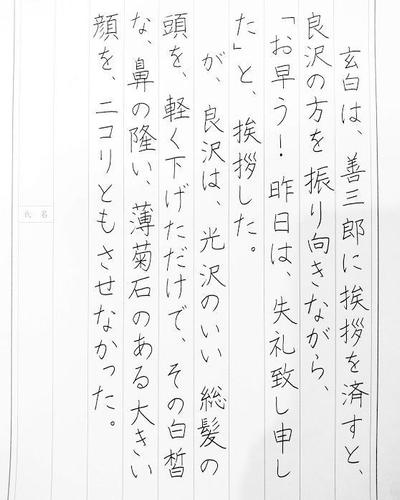 玄白は、善三郎に挨拶を済すと、
良沢の方を振り向きながら、
「お早う！ 昨日は、失礼致し申し
た」と、挨拶した。
が、良沢は、光沢のいい総髪の
頭を、軽く下げただけで、その白皙
な、鼻の隆い、薄菊石のある大きい
顔を、ニコリともさせなかった。
氏 名